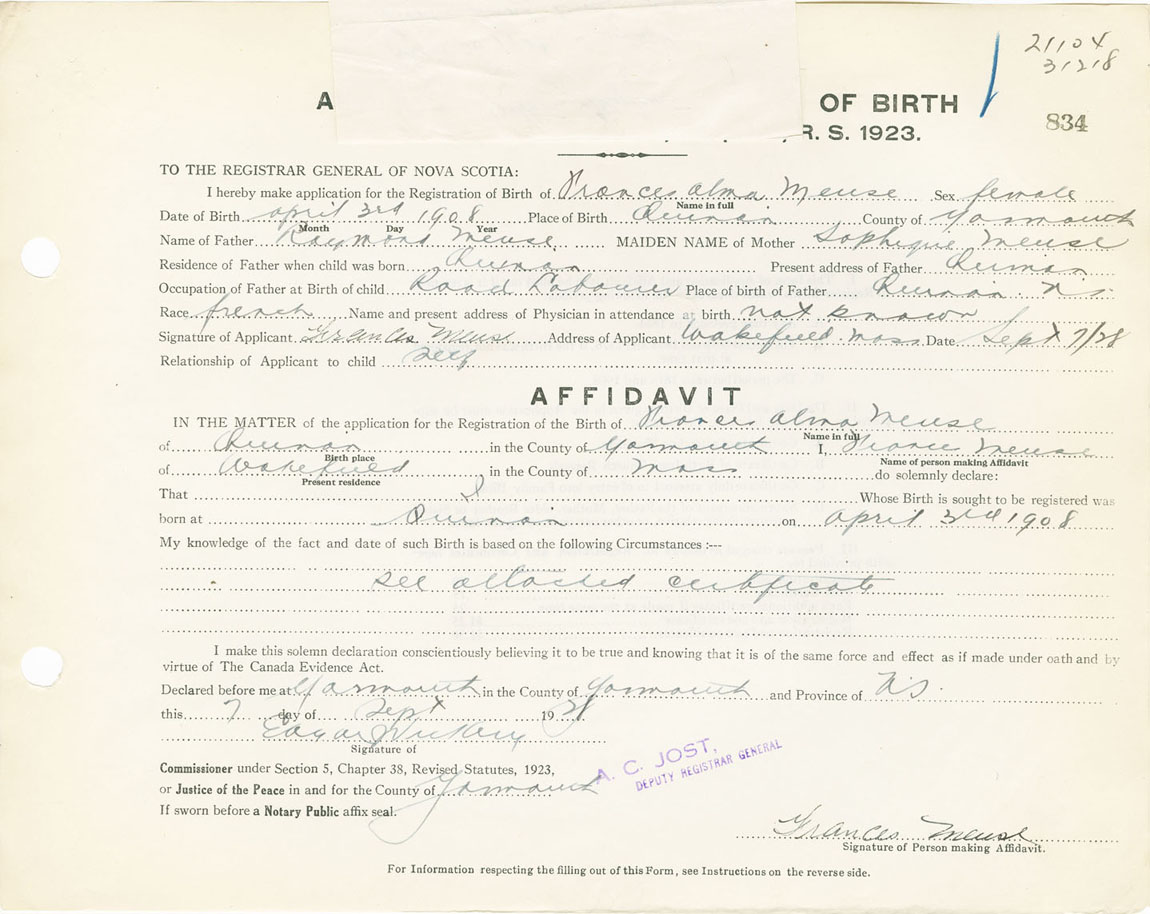 21104
31218
A OF BIRTH
834
R. S. 1923.
TO THE REGISTRAR GENERAL OF NOVA SCOTIA:
I hereby make application for the Registration of Birth of Frances Alma Meuse Sex female
Name in full
Date of Birth April 3rd 1908 Place of Birth Quinan County of Yarmouth
Month Day Year
Name of Father Raymond Meuse MAIDEN NAME of Mother Sophique Meuse
Residence of Father when child was born Quinan Present address of Father Quinan
Occupation of Father at Birth of child Road Labourer Place of birth of Father Quinan N.S.
Race french Name and present address of Physician in attendance at birth not known
Signature of Applicant Frances Meuse Address of Applicant Wakefield Mass Date Sept 7/28
Relationship of Applicant to child Self
AFFIDAVIT
IN THE MATTER of the application for the Registration of the Birth of Frances Alma Meuse
Name in full
of Quinan in the County of Yarmouth I, Meuse
Birth place Name of person making Affidavit
of Wakefield in the County of Mass do solemnly declare:
Present residence
That I Whose Birth is sought to be registered was
born at Quinan on April 3rd 1908
My knowledge of the fact and date of such Birth is based on the following Circumstances :---
see attached certificate
I make this solemn declaration conscientiously believing it to be true and knowing that it is of the same force and effect as if made under oath and by
virtue of The Canada Evidence Act.
Declared before me at Yarmouth in the County of Yarmouth and Province of N.S.
this 7 day of Sept 1928
Edgar
Signature of
Commissioner under Section 5, Chapter 38, Revised Statutes, 1923,
or Justice of the Peace in and for the County of Yarmouth
If sworn before a Notary Public affix seal.
A. C. JOST,
DEPUTY REGISTRAR GENERAL
Frances Meuse
Signature of Person making Affidavit.
For Information respecting the filling out of this Form, see Instructions on the reverse side.